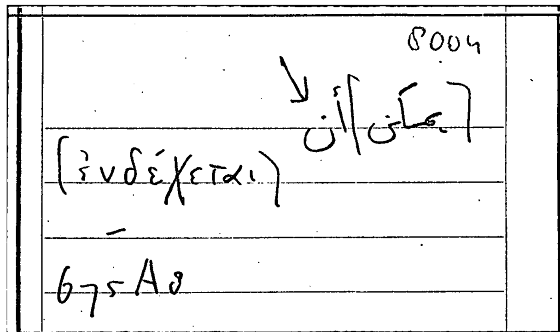 8004
[يمكن] أن لا
[ἐνδέχεται]
–
675A8